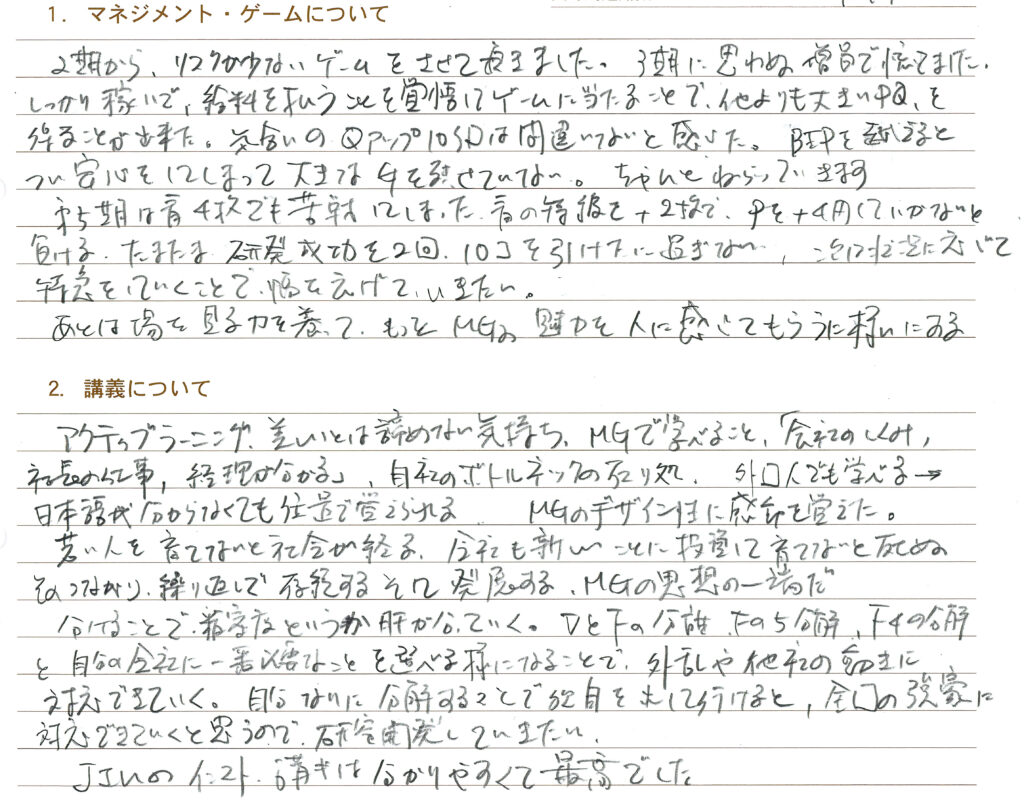 1. マネジメント・ゲームについて
2期から、リスクが少ないゲームをさせて頂きました。3期に思わぬ増員で慌てました。
しっかり稼いで、給料を払うことを覚悟してゲームに当たることで、他よりも大きいPQを
得ることが出来た。気合いのQアップ10個は間違いないと感じた。BEPを超えると
つい安心をしてしまって大きなGを残せていない。ちゃんとねらっていきます
第5期は青4枚でも苦戦してしました。青の特急を+2枚で、Pを+4円していかないと
負ける。たまたま研発成功を2回、10コを引けたに過ぎない、これは状況に応じて
特急をしていくことで、幅を広げていきたい。
あとは場を見る力を養って、もっとMGの魅力を人に感じてもらう様になる
2. 講義について
アクティブラーニング、楽しいとは諦めない気持ち、MGで学べること、「会社のしくみ、
社長の仕事、経理が分かる」、自社のボトルネックの在り処、外国人でも学べる→
日本語が分からなくても位置で覚えられる MGのデザイン性に感銘を覚えた。
若い人を育てないと社会が終る、会社も新しいことに投資して育てないと死ぬ
そのつながり、繰り返しで存続するそして発展する、MGの思想の一端だ
分けることで、精密度というか肝が分っていく。VとFの分離、Fの5分解、F4の分解
と自分の会社に一番必要なことを選べる様になることで、外乱や他社の動きに
対応できていく。自分なりに分解することで独自を出して行けると、全国の強豪に
対応できていくと思うので、研究開発していきたい。
JJいのイラスト、講義は分かりやすくて最高でした